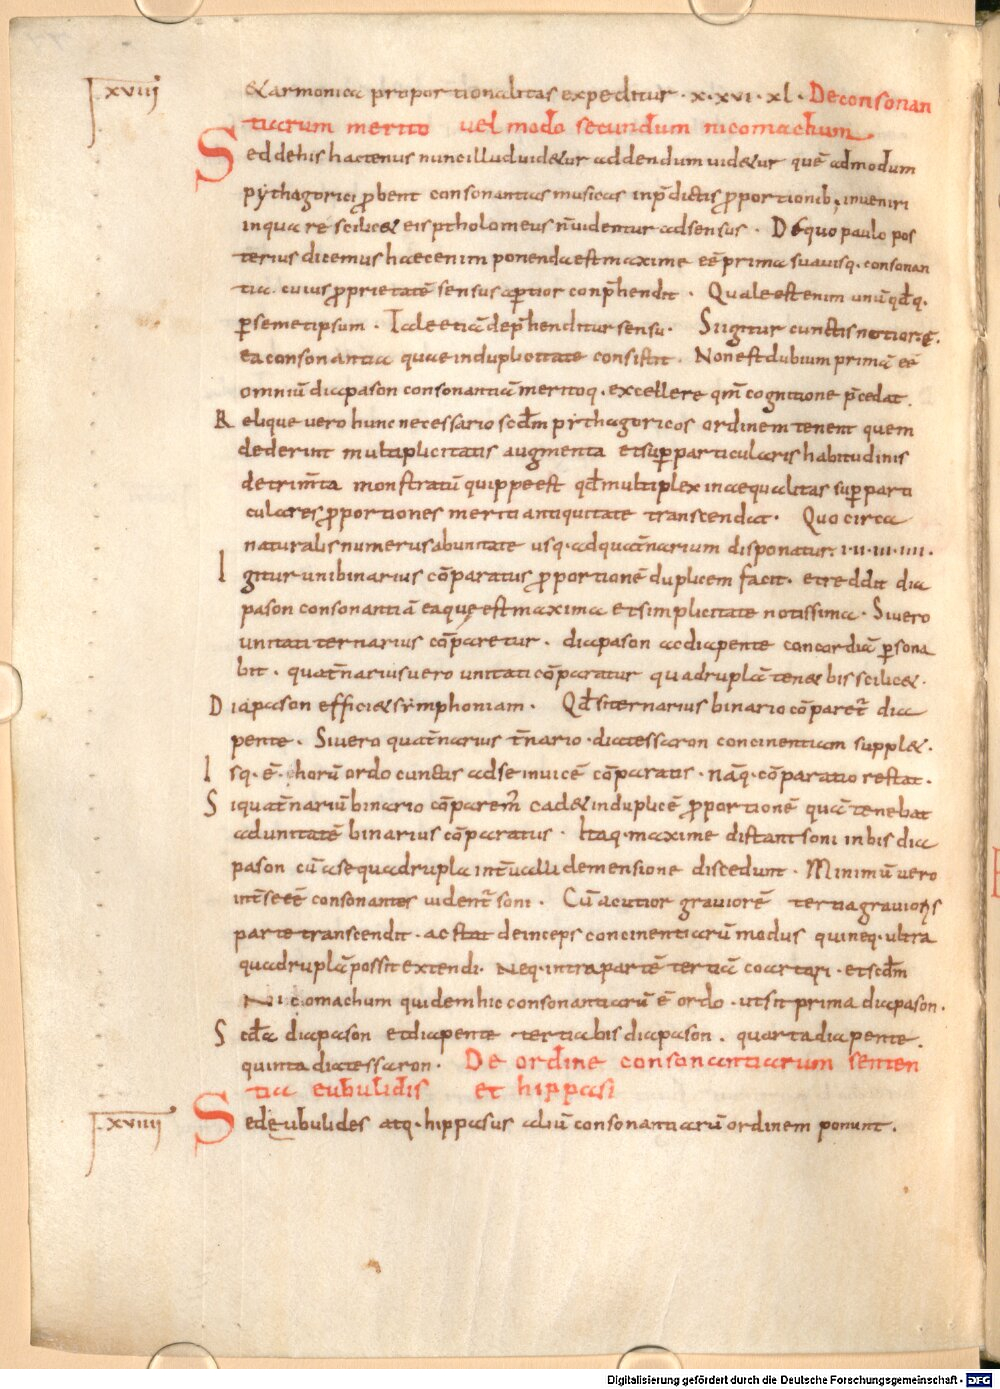 xviij
& armonica proportionalitas expeditur · x · xvi · xl · De consonan
tiarum merito uel modo secundum nicomachum
Sed de his hactenus nunc illud uid&ur addendum uid&ur quē admodum
pythagorici p̱bent consonantias musicas in p̄dictis p̱portionib; inueniri
in qua re scilic& eis ptholomeus n̄ uidentur adsensus · De quo paulo pos
terius dicemus haec enim ponenda est maxime eē prima suauisq· consonan
tia cuius p̱prietatē sensus aptior conp̄hendit · Quale est enim unū qđq·
p̱ semetipsum · Tale etiā dep̄henditur sensu · Si igitur cunctis notior ē·
ea consonantia quae in duplicitate consistit · Non est dubium primā eē
omniū diapason consonantiā meritoq· excellere qm̄ cognitione p̄cedat ·
Relique uero hunc necessario scđm pythagoricos ordinem tenent quem
dederint multiplicitatis augmenta et sup̱particularis habitudinis
detrim̄ta monstratū quippe est qđ multiplex inaequalitas sup̱parti
culares p̱portiones meriti antiquitate transcendat · Quo circa
naturalis numerus ab unitate usq· ad quat̄narium disponatur · i · ii · iii · iiii ·
Igitur uni binarius cōparatus p̱portionē duplicem facit · et reddit dia
pason consonantiā eaque est maxima et simplicitate notissima · Si uero
unitati ternarius cōparetur · diapason ac diapente concordiā p̱sona
bit · quat̄narius uero unitati cōparatur quadruplā ten& bis scilic& ·
Diapason effici& symphoniam · Qđ si ternarius binario cōparet̄ dia
pente · Si uero quat̄narius t̄nario · diatessaron concinentiam suppl& ·
Isq· ē· horū ordo cunctis ad se inuicē cōparatis · nāq· cōparatio restat ·
Si quat̄nariū binario cōparem̄ cad& in duplicē p̱portionē quā tenebat
ad unitatē binarius cōparatus · Itaq· maxime distant soni in bis dia
pason cū a se quadrupla int̄ualli demensione discedunt · Minimū uero
int̄ se eē consonantes uident̄ soni · Cū acutior grauiorē tertia grauioris
parte transcendit · ac stat deinceps concinentiarū modus qui neq· ultra
quadruplā possit extendi · neq· intra partē tertiā coartari · et scđm
Nicomachum quidem hic consonantiarū ē ordo · ut sit prima diapason ·
Scđa diapason et diapente tertia bis diapason · quarta diapente ·
quinta diatessaron · De ordine consonantiarum senten
tia eubulidis et hippasi
xviiij
Sed eubulides atq· hippasus aliū consonantiarū ordinem ponunt ·
Digitalisierung gefördert durch die Deutsche Forschungsgemeinschaft · DFG